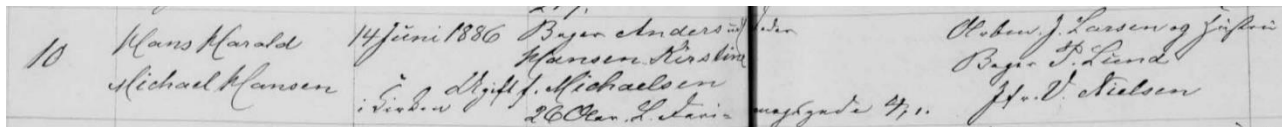 10 Hans Harald Michael Hansen
14 Juni 1886
i Kirken
Bager Anders
Hansen Kirstine
Ugift f. Michaelsen
26 Aar. L. Fari=
magsgade 4/1.
Arbm. J. Larsen og Hustru
Bager P. Lund
Jfr. V. Nielsen